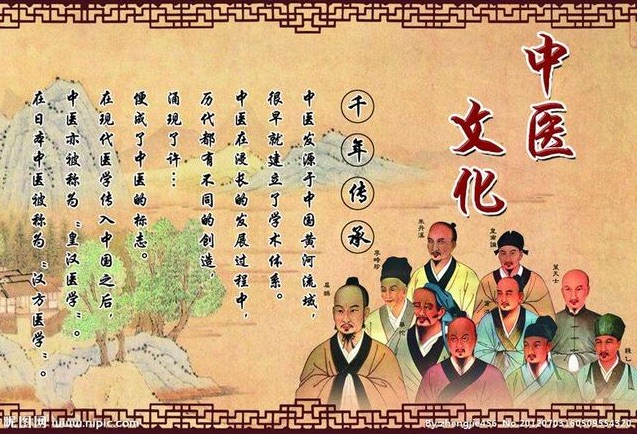 中医
文化
千年传承
中医发源于中国黄河流域，
很早就建立了学术体系。
中医在漫长的发展过程中，
历代都有不同的创造，
涌现了许…
便成了中医的标志。
在现代医学传入中国之后，
中医亦被称为“皇汉医学”。
在日本中医被称为“汉方医学”。
朱丹溪
皇甫谧
李时珍
葉天士
扁鵲
錢乙
昵图网 www.nipic.com
By:zhengjie456